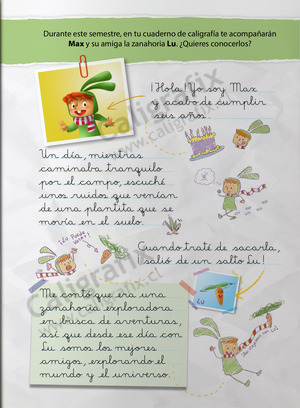 Durante este semestre, en tu cuaderno de caligrafía te acompañarán
Max y su amiga la zanahoria Lu. ¿Quieres conocerlos?
¡Hola! Yo soy Max
y acabo de cumplir
seis años.
Un día, mientras
caminaba tranquilo
por el campo, escuché
unos ruidos que venían
de una plantita que se
movía en el suelo.
Cuando traté de sacarla,
¡salió de un salto Lu!
LU
Me contó que era una
zanahoria exploradora
en busca de aventuras,
así que desde ese día con
Lu somos los mejores
amigos, explorando el
mundo y el universo.
Caligrafix
www.caligrafix.cl